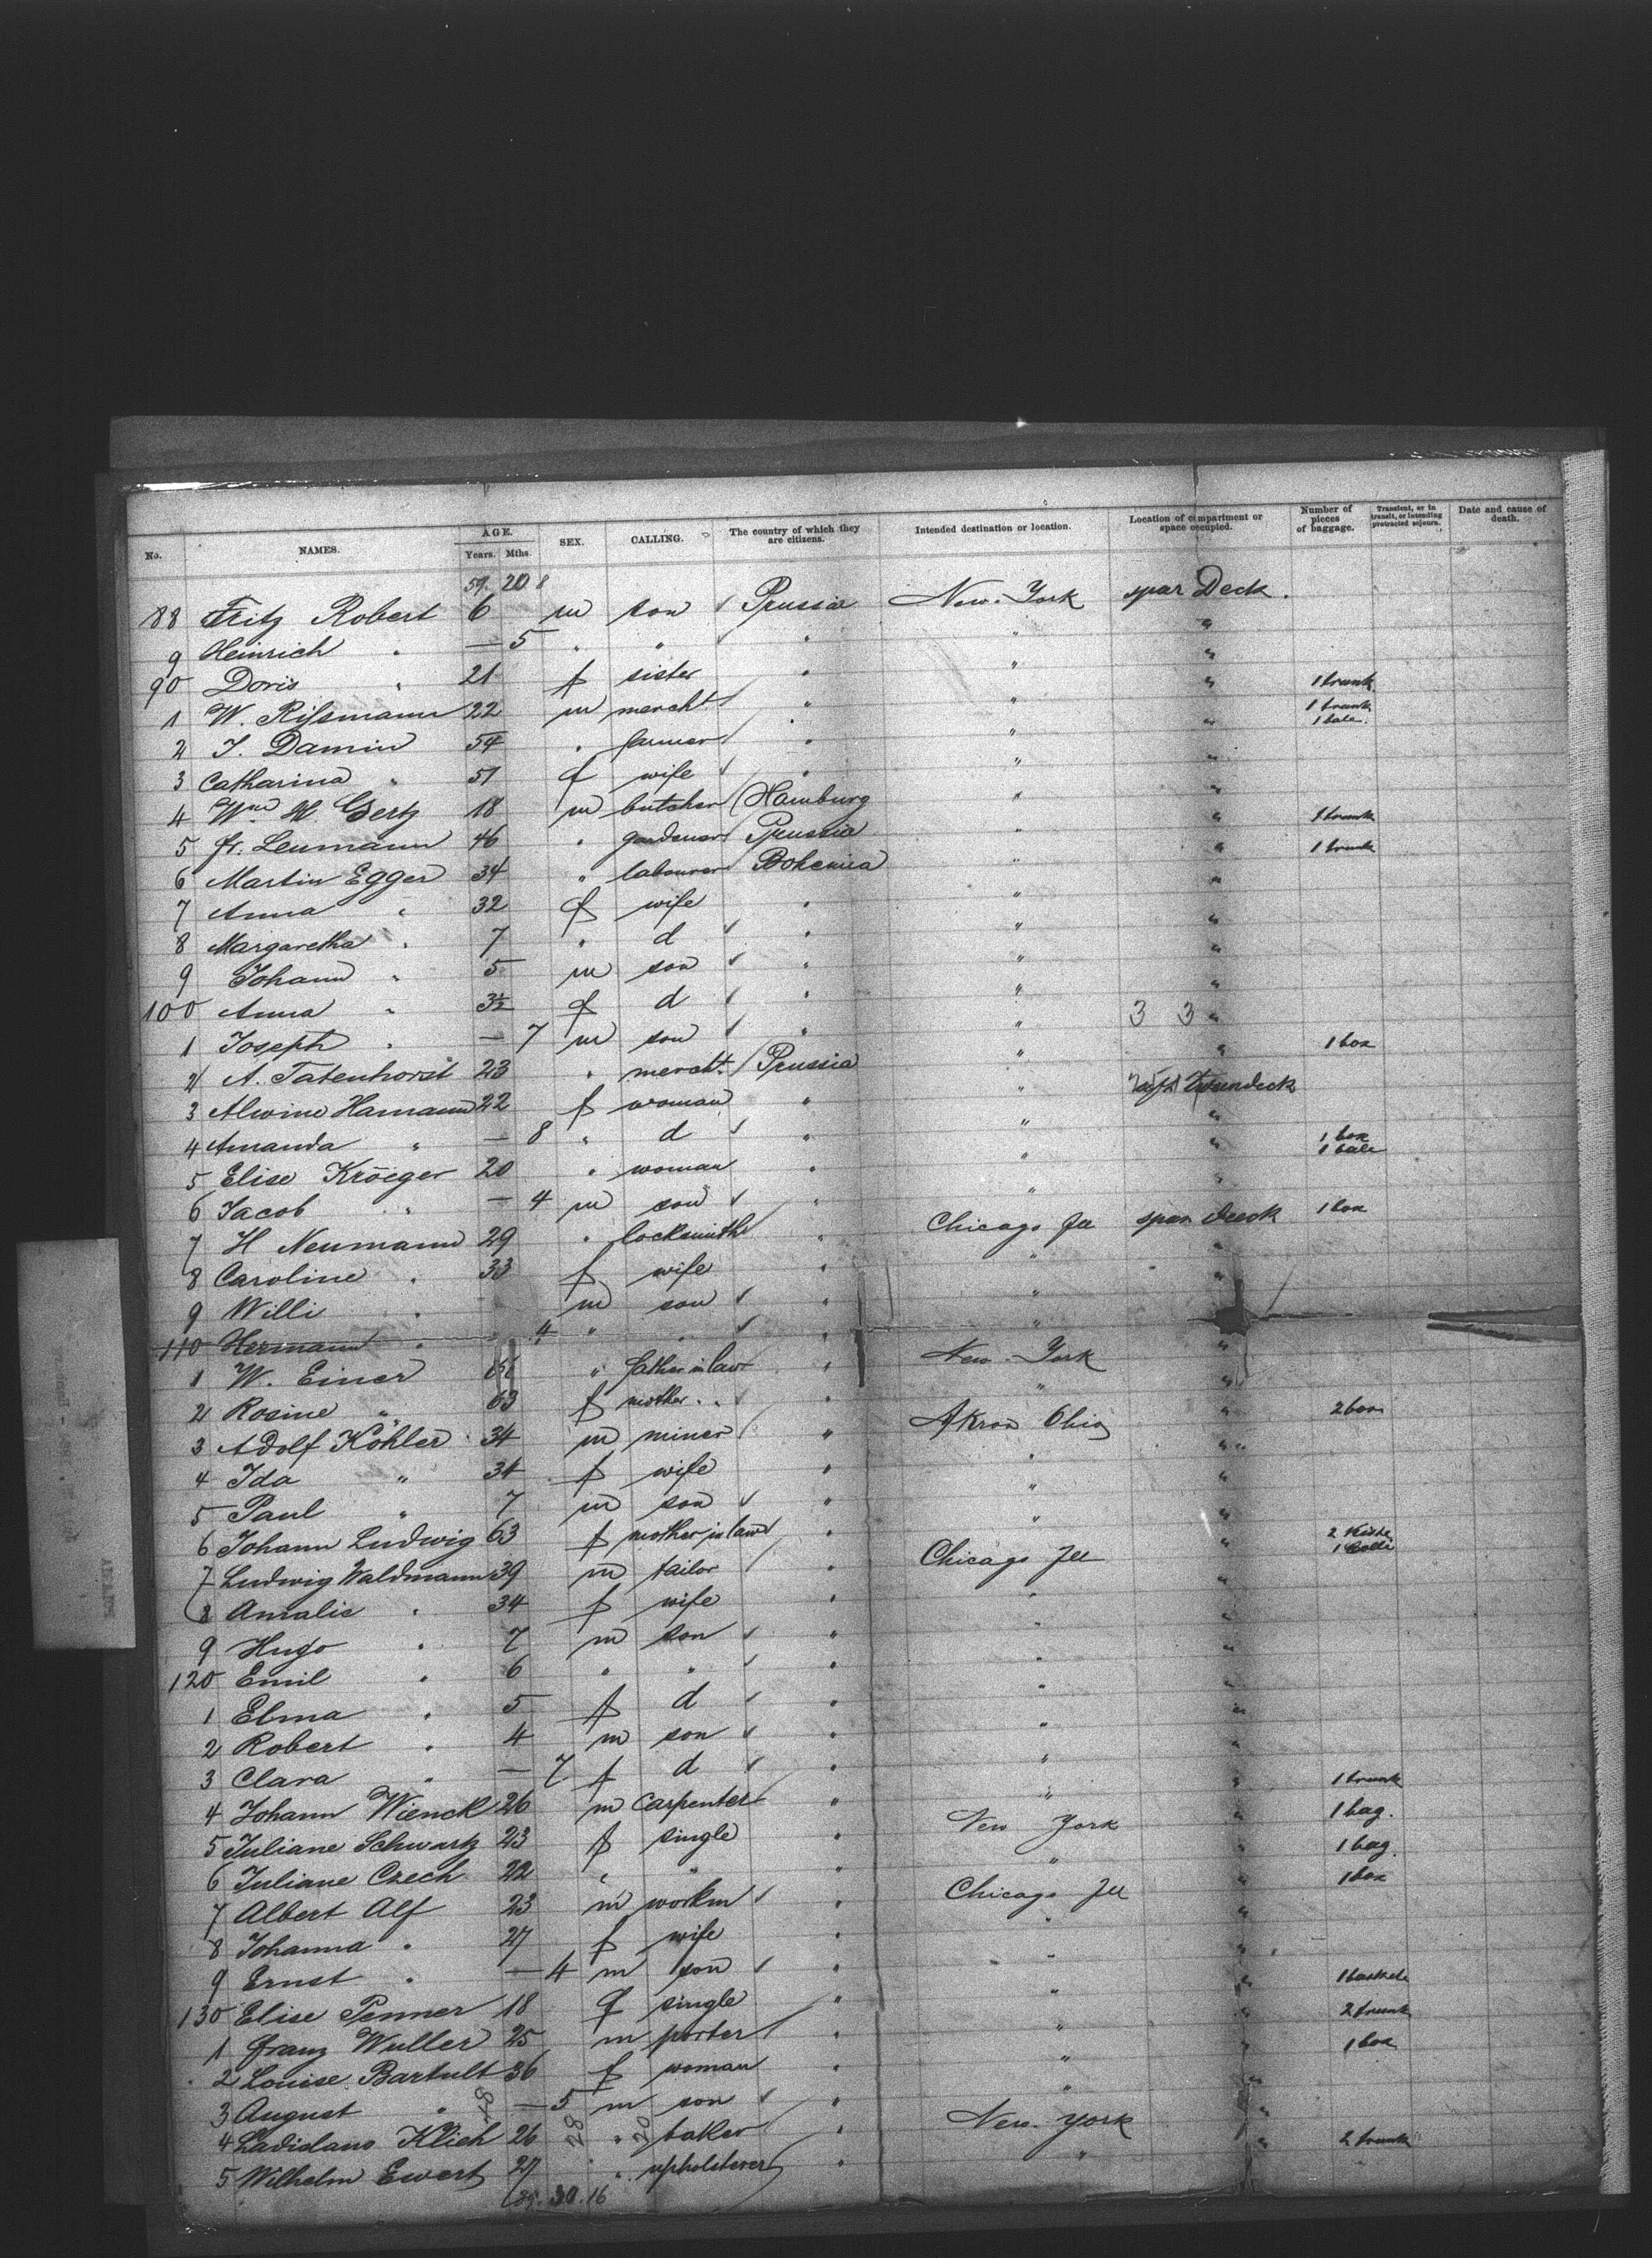 No. NAMES. AGE. Years. Mths. SEX. CALLING. The country of which they are citizens. Intended destination or location. Location of compartment or space occupied. Number of pieces of baggage. Transient, or in transit, or intending protracted sojourn. Date and cause of death.
59. 20 8
88 Fritz Robert 6 m son Prussia New-York spar Deck.
9 Heinrich " — 5 " " " " "
90 Doris " 21 f sister " " "
1 W. Rissmann 22 m mercht " " " 1 trunk
2 J. Damin 54 " farmer " " " 1 trunk 1 bale.
3 Catharina " 51 f wife " " "
4 Wm H. Gertz 18 m butcher Hamburg " "
5 Fr. Leumann 46 " gardener Prussia " " 1 trunk
6 Martin Egger 34 " labourer Bohemia " " 1 trunk
7 Anna " 32 f wife " " "
8 Margaretha " 7 " d " " "
9 Johann " 5 m son " " "
100 Anna " 3½ f d " " "
1 Joseph " — 7 m son " " 3 3 "
2 A. Tatenhorst 23 " mercht. Prussia " " 1 box
3 Alwine Hamann 22 f woman " "
4 Amanda " — 8 " d " " "
5 Elise Kröeger 20 " woman " " " 1 box 1 bale
6 Jacob " — 4 m son " " "
7 H Neumann 29 " locksmith " Chicago Ill spar deeck 1 box
8 Caroline " 33 f wife " " "
9 Willi " m son " " "
110 Hermann " 4 " " " " "
1 W. Einer " father in law " New-York "
2 Rosine " 63 f mother " " " "
3 Adolf Köhler 34 m miner " Akron Ohio " 2 box
4 Ida " 34 f wife " " "
5 Paul " 7 m son " " "
6 Johann Ludwig 63 f mother in law " " "
7 Ludwig Waldmann 39 m tailor " Chicago Ill "
8 Amalie " 34 f wife " " "
9 Hugo " 7 m son " " "
120 Emil " 6 " " " " "
1 Elma " 5 f d " " "
2 Robert " 4 m son " " "
3 Clara " — 7 f d " " "
4 Johann Wienck 26 m carpenter " " " 1 trunk
5 Juliane Schwartz 23 f single " New York " 1 bag.
6 Juliane Czech 22 " " " " " 1 bag.
7 Albert Alf 23 m workm " Chicago Ill " 1 box
8 Johanna " 27 f wife " " "
9 Ernst " — 4 m son " " "
130 Elise Penner 18 f single " " " 1 basket
1 Franz Wuller 25 m porter " " " 2 trunk
2 Louise Bartult 36 f woman " " " 1 box
3 August " — 5 m son " " "
4 Ladislaus Klich 26 " baker " New-York "
5 Wilhelm Ewert 27 " upholsterer " " " 2 trunk
30. 16